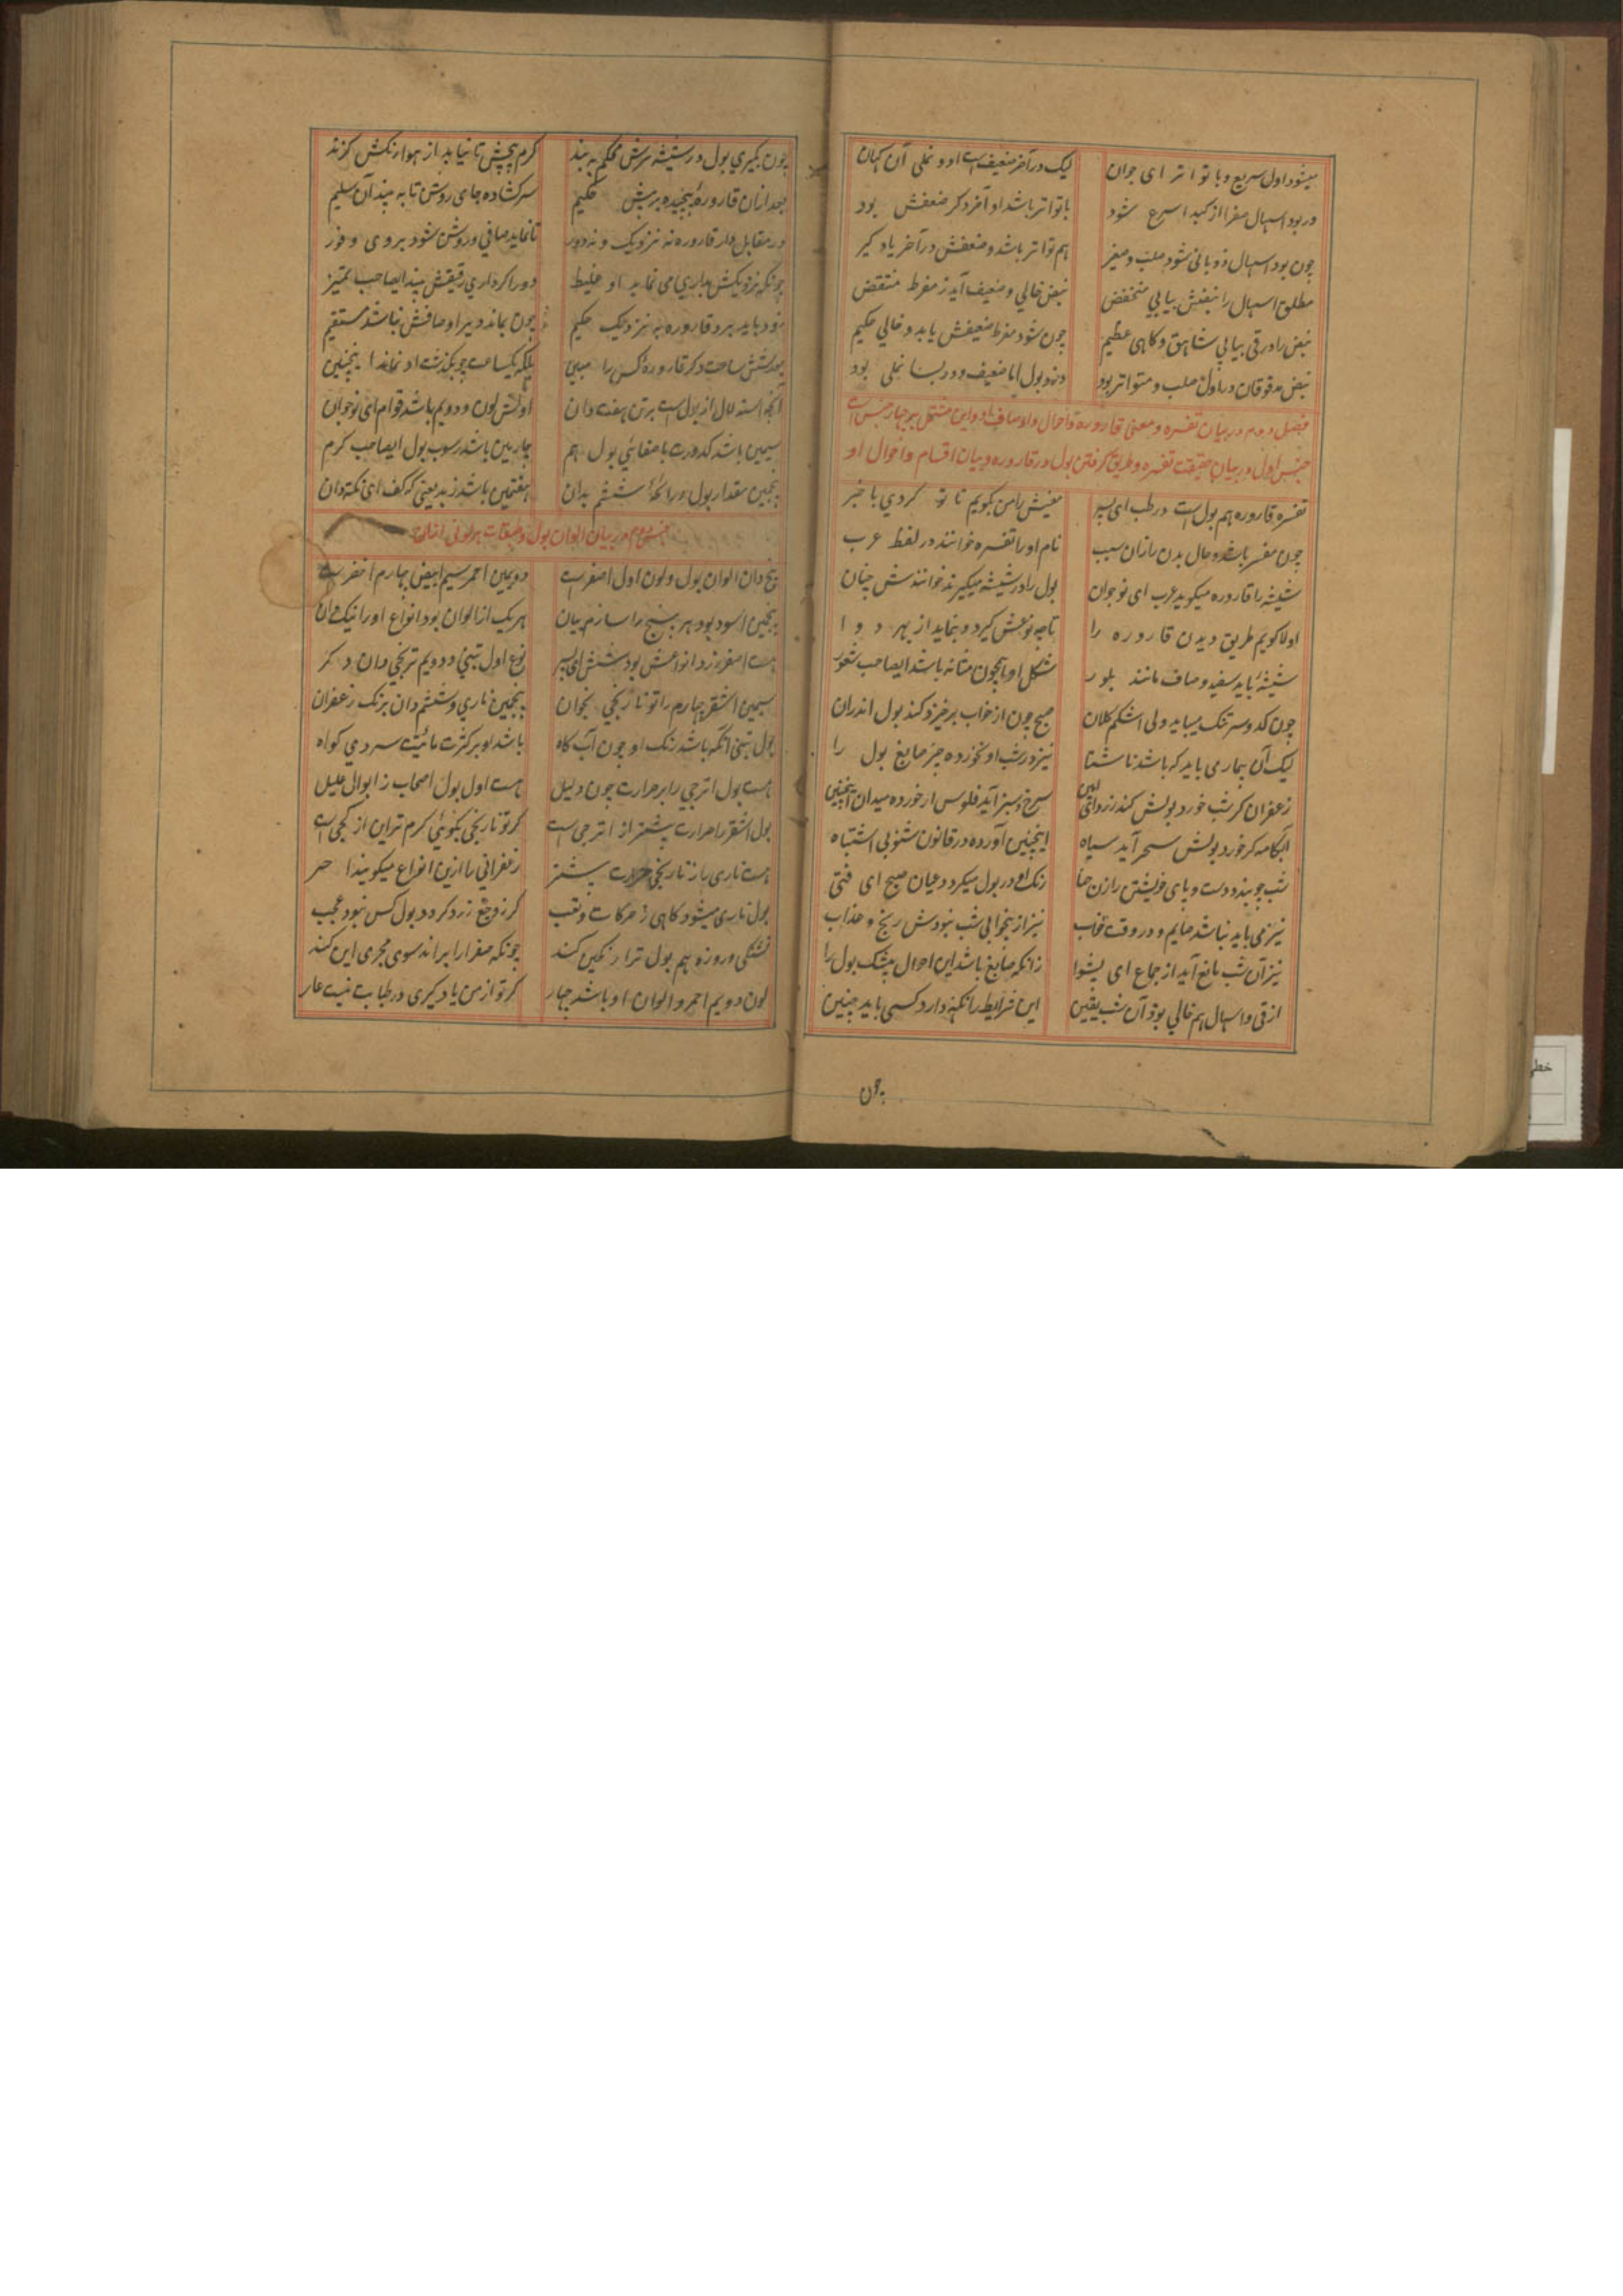 میشود اول سریع و با تواتر ای جوان لیک در آخر ضعیف است او و نملی آن کهان
در بود اسهال صفرا از کبد اسرع شود با تواتر باشد او آخر دگر ضعفش بود
چون بود اسهال ذوبانی شود صلب و صغیر هم تواتر باشد و ضعفش در آخر یاد گیر
مطلق اسهال را نبضش بیابی منخفض نبض خالی و ضعیف آید ز مفرط منتقض
نبض را در قی بیابی شاهق و کاهی عظیم چون شود مفرط ضعیفش یابد و خالی حکیم
نبض مدقوقان در اول صلب و متواتر بود در ذبول اما ضعیف و در بسا نملی بود
فصل دوم در بیان تفسره و معنی قاروره و احوال و اوصاف او و این مشتمل بر چهار جنس است
جنس اول در بیان حقیقت تفسره و طریق گرفتن بول در قاروره و بیان اقسام و احوال او
تفسره قاروره هم بول است در طب ای پسر معنیش را من بگویم تا تو گردی با خبر
چون مفسر باشد و حال بدن را زان سبب نام او را تفسره خوانند در لفظ عرب
شیشه را قاروره میگوید عرب ای نوجوان بول را در شیشه میگیرند خوانندش چنان
اولا گویم طریق دیدن قاروره را تا چه نوعش گیرد و بنماید از بهر دوا
شیشهٔ باید سفید و صاف مانند بلور شکل او همچون مثانه باشد ایصاحب شعور
چون کدو سر تنک میباید ولی اشکم کلان صبح چون از خواب برخیزد کند بول اندران
لیک آن بیماری باید که باشد ناشتا نیز در شب او نخورده چیز صابغ بول را
زعفران گر شب خورد بولش کند زرد اتین سرخ و سبز آید فلوس ار خورده میدان اینچنین
آبکامه گر خورد بولش سحر آید سیاه اینچنین آورده در قانون شنو بی اشتباه
شب چو بندد دست و پای خویشتن را زن حنا رنک او در بول میگردد عیان صبح ای فتی
نیز می باید نباشد صایم و در وقت خواب نیز از بیخوابی شب نبودش رنج و عذاب
نیز آن شب مانع آید از جماع ای پیشوا زانکه صابغ باشد این احوال بیشک بول را
از قی و اسهال هم خالی بود آن شب یقین این شرایط را نگه دارد کسی باید چنین
چون
چون بگیری بول در شیشه سرش محکم به بند گرم پیچش تا نیابد از هوا رنکش گزند
بعد ازان قارورهٔ پیچیده بر پیش حکیم سر کشاده جای روشن تا به بیند آن سلیم
در مقابل دار قاروره نه نزدیک و نه دور تا نماید صافی و روشن شود بر وی وفور
چونکه نزدیکش بداری می نماید او غلیظ دور اگر داری رقیقش بیند ایصاحب تمیز
زود باید برد قاروره به نزدیک حکیم چون بماند دیر اوصافش نباشد مستقیم
بعد شش ساعت دگر قارورهٔ کس را مبین بلکه یکساعت چو بگذشت او نماند اینچنین
آنچه استدلال از بول است بر تن هفت دان اولش لون و دویم باشد قوام ای نوجوان
سیمین باشد کدورت با صفائی بول هم چارمین باشد رسوب بول ایصاحب کرم
پنجمین مقدار بول و رائحهٔ ششم بدان هفتمین باشد زبد یعنی که کف ای نکته دان
جنس دوم در بیان الوان بول و صفات هر لونی ازان
پنج دان الوان بول و لون اول اصفر است دویمین احمر سیم ابیض چهارم اخضر است
پنجمین اسود بود هر پنج را سازم بیان هر یک از الوان بود انواع او را نیک دان
هست اصفر زرد انواعش بود شش ای پسر نوع اول تبنی و دویم ترنجی دان دگر
سیمین اشقر چهارم را تو نارنجی بخوان پنجمین ناری و ششم دان برنک زعفران
بول تبنی آنکه باشد رنک او چون آب کاه باشد او بر کثرت مائیت سردی گواه
هست بول اترجی را بر حرارت چون دلیل هست اول بول اصحاب ز ابوال علیل
بول اشقر را حرارت بیشتر از اترجی است گر تو نارنجی بگوئی گرم تر این از کجی است
هست ناری باز نارنجی حرارت بیشتر زعفرانی را ازین انواع میگویند احر
بول ناری میشود کاهی ز حرکات و تعب گر ز وجع زرد گردد بول کس نبود عجب
تشنگی و روزه هم بول ترا رنگین کند چونکه صفرا را براند سوی مجری این کند
لون دویم احمر و الوان او باشد چهار گر تو از من یاد گیری در طبابت نیست عار
خطی